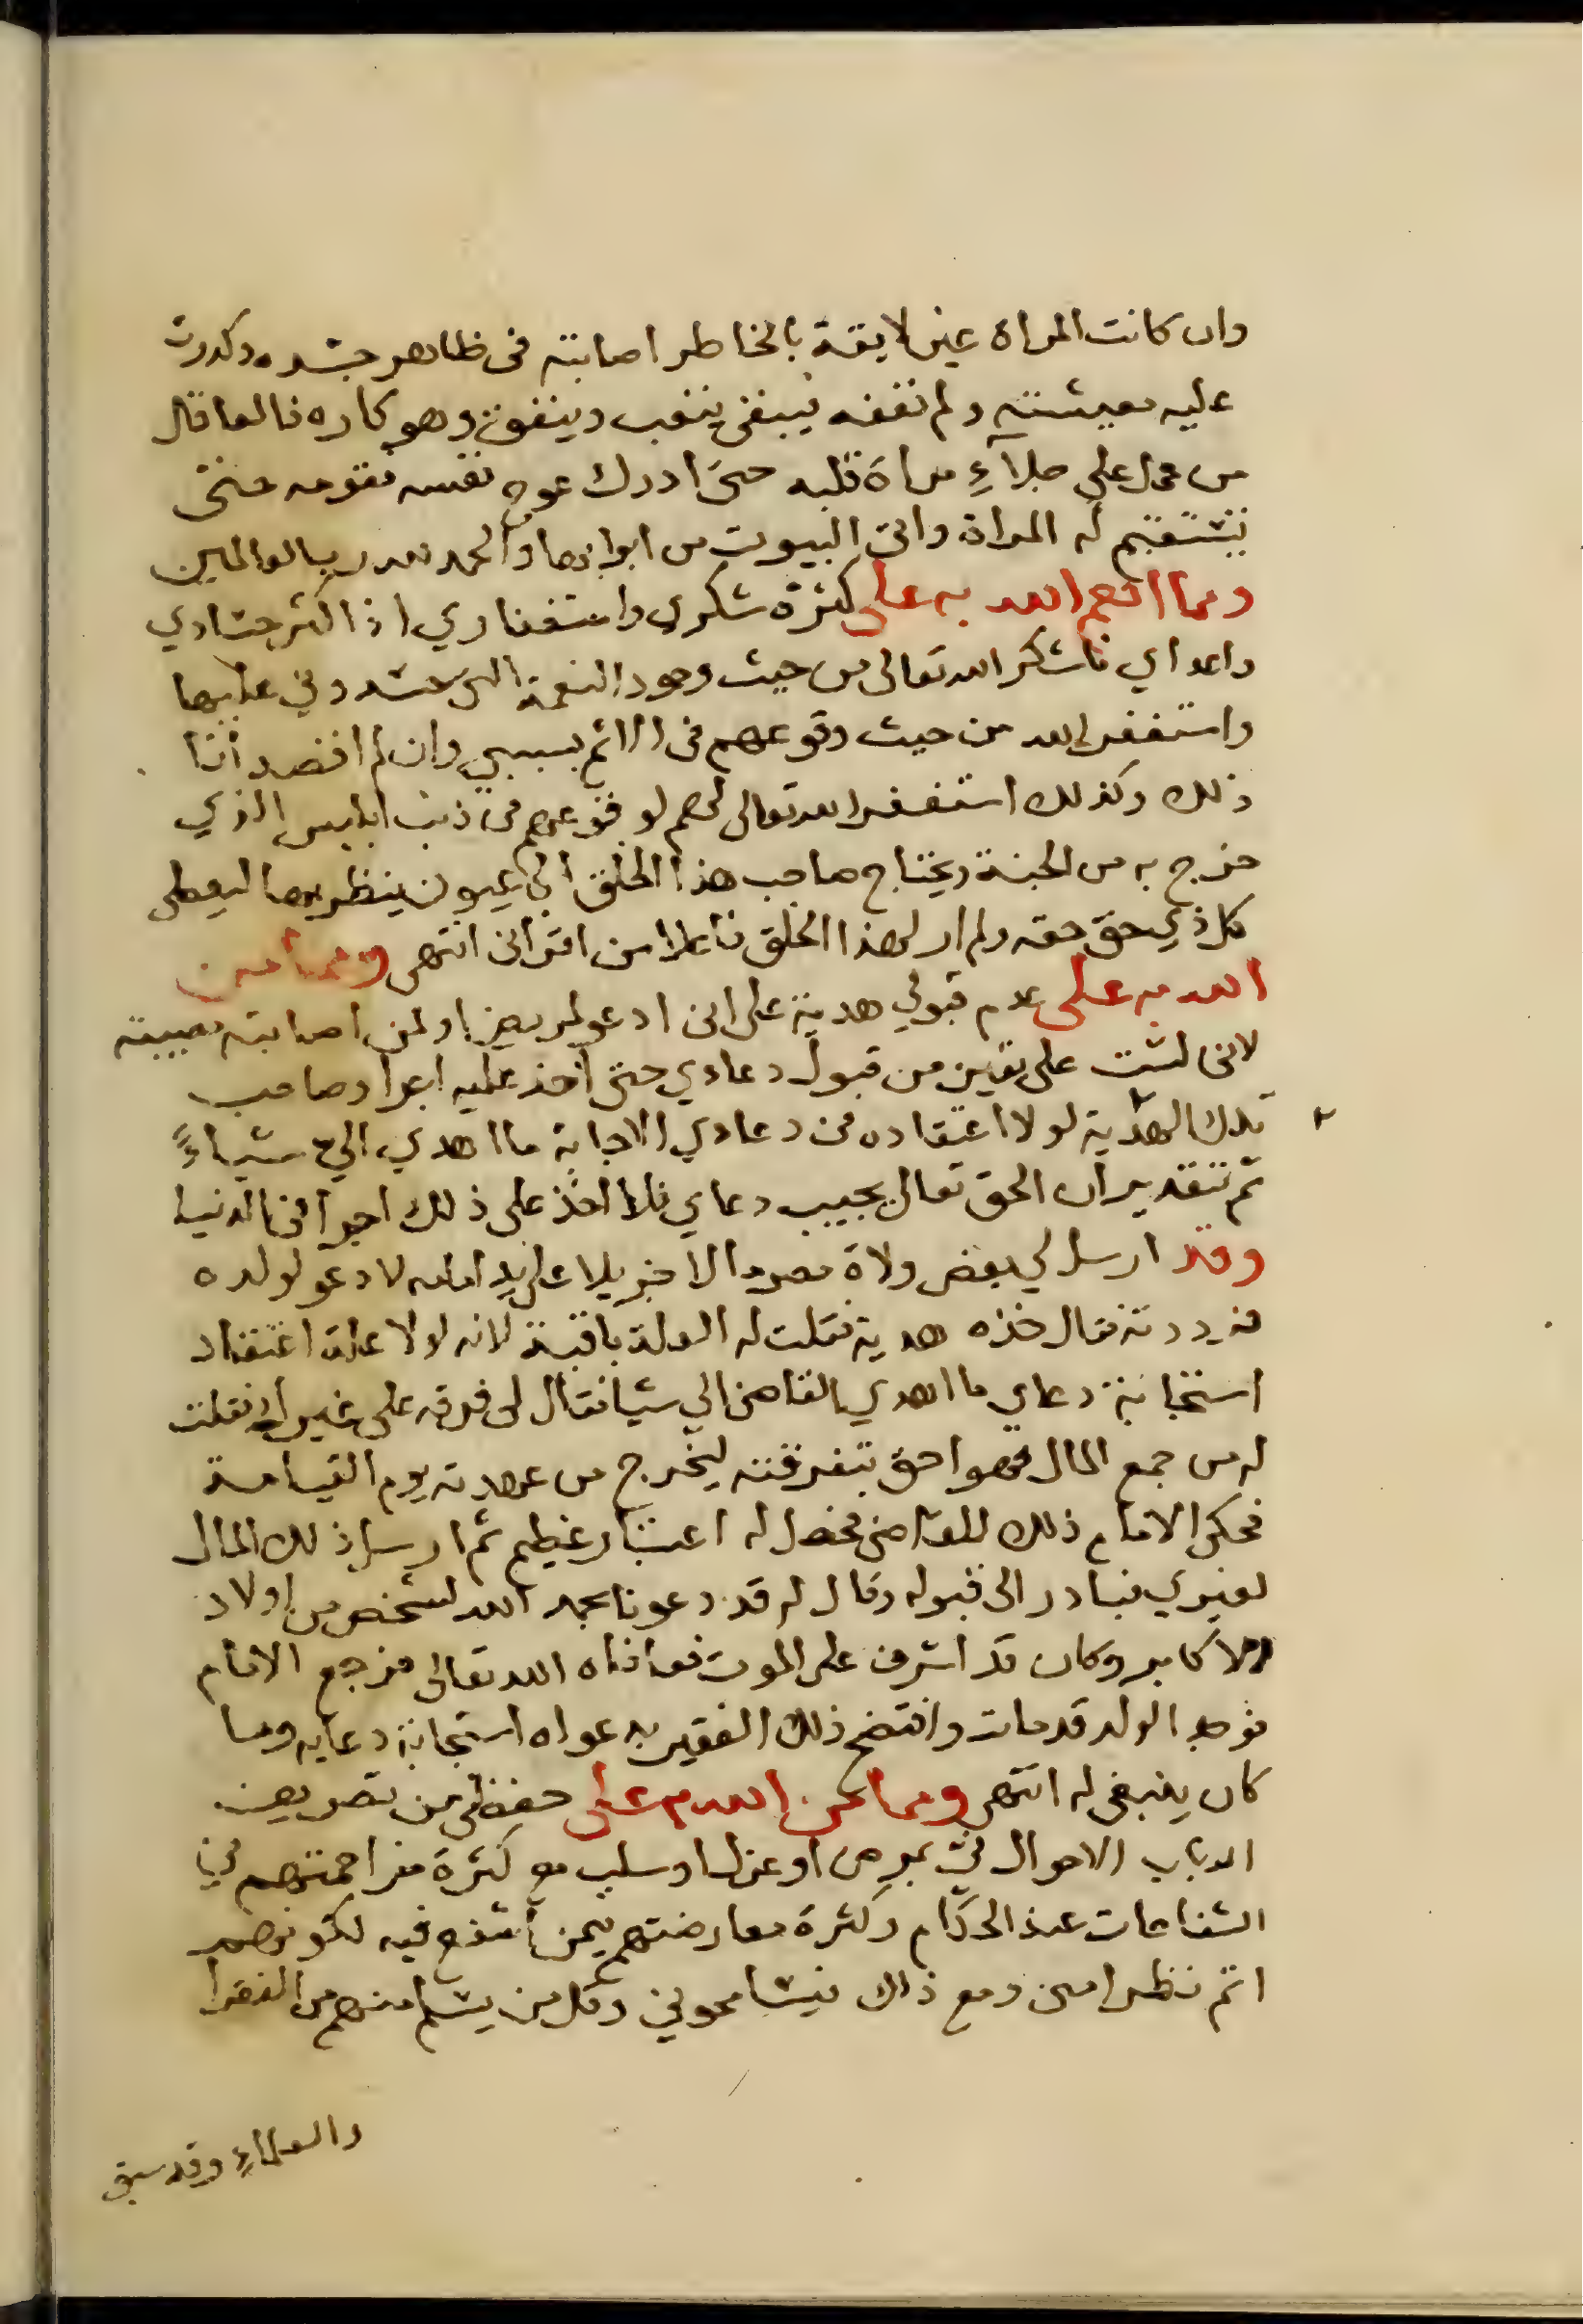 وان كانت المراة غير لايقة بالخاطر اصابته في ظاهر جسده وكدرت
عليه معيشته ولم تعفه فيبقى يتعب وينفق وهو كاره فالعاقل
من عمل على جلآءِ مراة قلبه حتى ادرك عوج نفسه فقومه حتى
تستقيم له المراة واتى البيوت من ابوابها والحمد لله رب العالمين
ومما انعم الله به على كثرة شكري واستغفاري اذا كثر حسادي
واعداي فاشكر الله تعالى من حيث وجود النعمة التى حسدوني عليها
واستغفر الله من حيث وقوعهم في الاثم بسببي وان لم اقصد انا
ذلك وكذلك استغفر الله تعالى لهم لوقوعهم في ذنب ابليس الذي
خرج به من الجنة ويحتاج صاحب هذا الخلق الى عيون ينظر بها ليعطى
كل ذي حق حقه ولم ار لهذا الخلق فاعلا من اقراني انتهى ومما من
الله به على عدم قبولي هدية على انى ادعو لمريض او لمن اصابته مصيبة
لانى لست على يقين من قبول دعاءي حتى آخذ عليه اجرا وصاحب
تلك الهدية لولا اعتقاده في دعاءي الاجابة ما اهدي الي شياءً
ثم بتقدير ان الحق تعالى يجيب دعاي فلا آخذ على ذلك اجرا في الدنيا
وقد ارسل لي بعض ولاة مصر مالا جزيلا على يد امامه لادعو لولده
فرددته فقال خذه هدية فقلت له العلة باقية لانه لولا علة اعتقاد
استجابة دعاي ما اهدي القاضى الي شيا فقال لى فرقه على غيرك فقلت
له من جمع المال فهو احق بتفرقته ليخرج من عهدته يوم القيامة
فحكى الامام ذلك للقاضى فحصل له اعتبار عظيم ثم ارسل ذلك المال
لغيري فبادر الى قبوله وقال له قد دعونا بحمد الله لشخص من اولاد
الاكابر وكان قد اشرف على الموت فعافاه الله تعالى فرجع الامام
فوجد الولد قد مات وافتضح ذلك الفقير بدعواه استجابة دعايه وما
كان ينبغى له انتهى ومما من الله به على حفظى من تصريف
ارباب الاحوال في بمرض او عزل او سلب مع كثرة مزاحمتهم في
الشفاعات عند الحكام وكثرة معارضتهم فيمن اشفع فيه لكونهم
اتم نظرا منى ومع ذلك فيسامحوني وقل من يسلم منهم من الفقرا
والعلماءِ وقد سبق